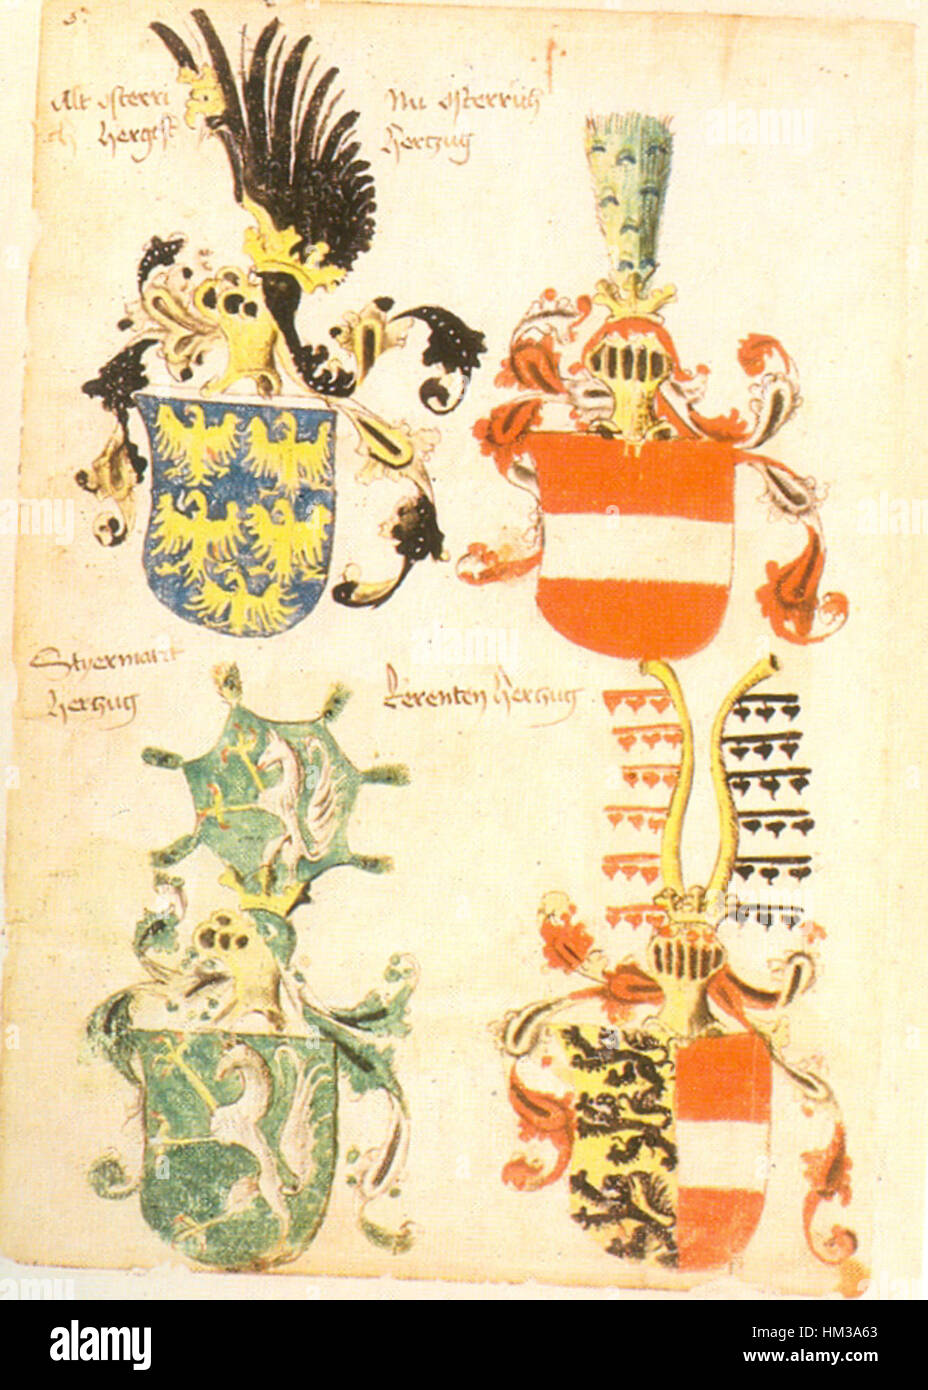 Alt osterri
ch hertzog
Nu osterrich
hertzug
Styermarct
hertzug
kerenten hertzug
alamy
Image ID: HM3A63
www.alamy.com